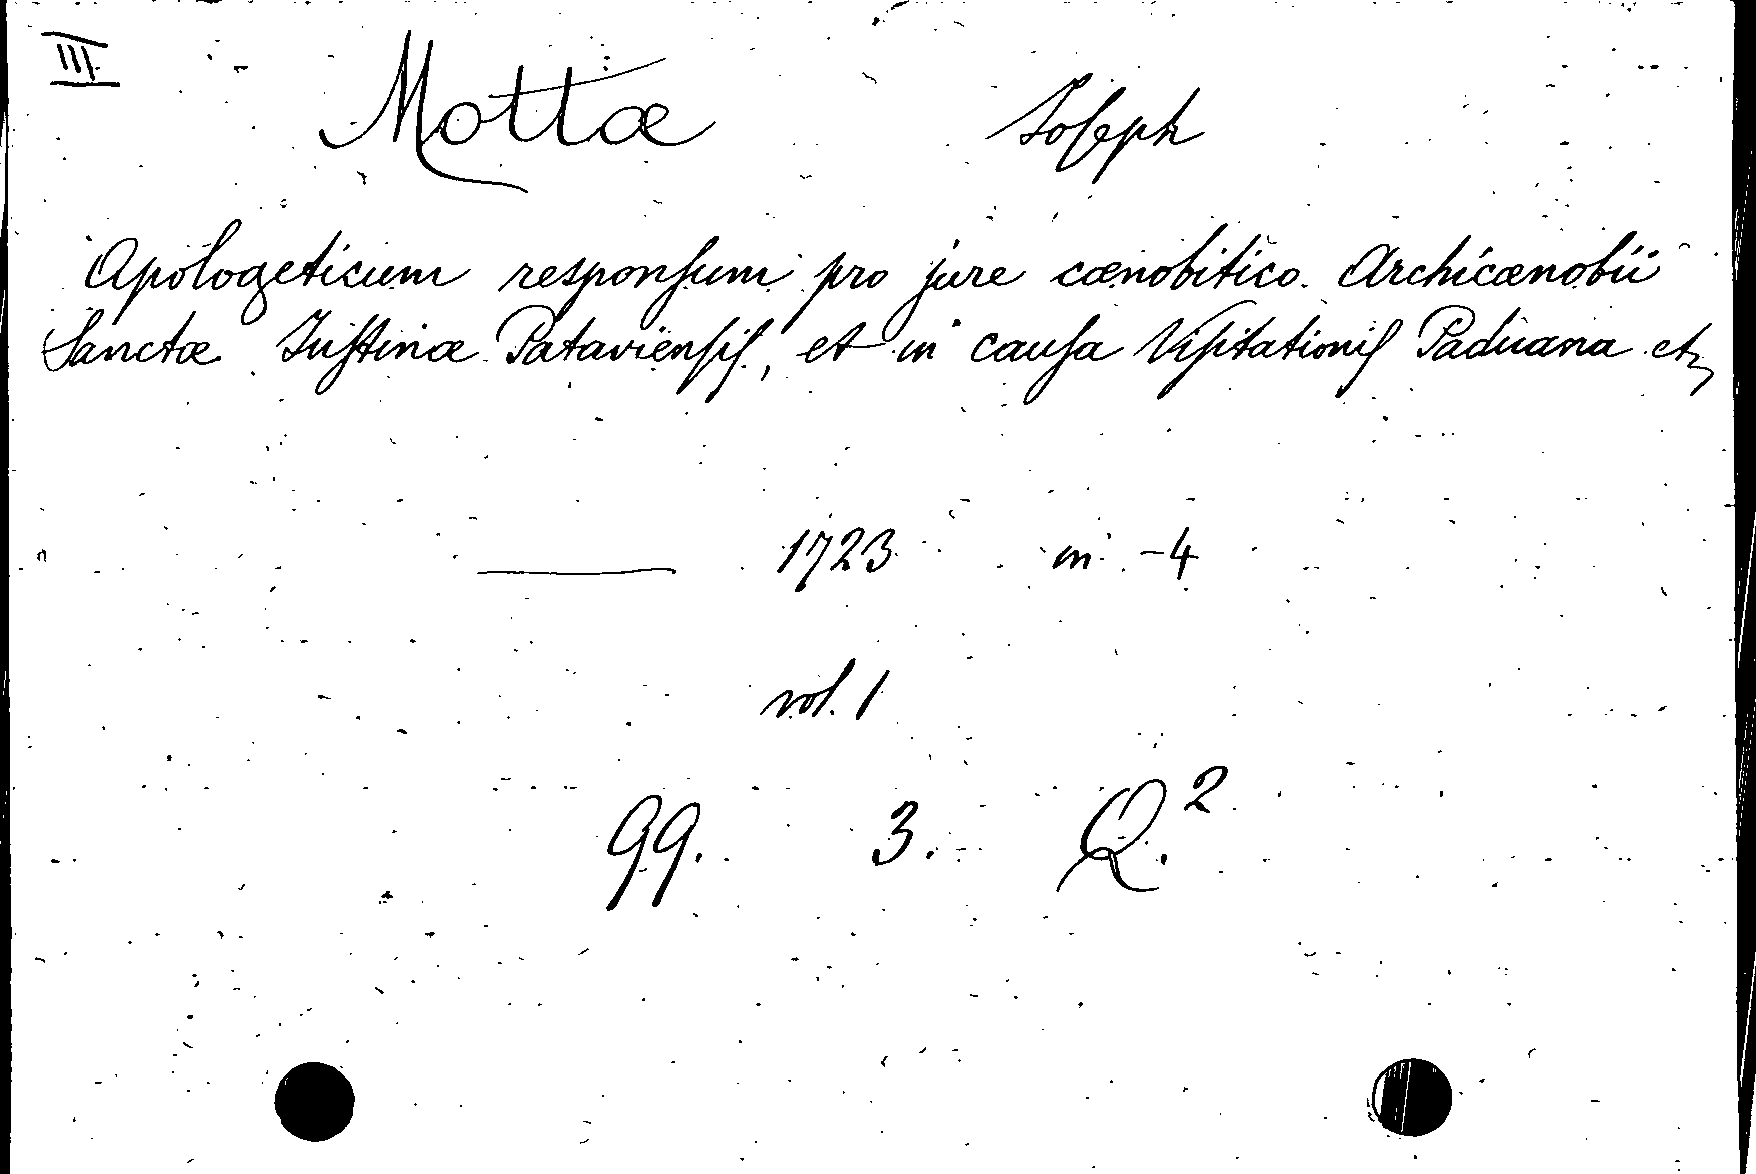 III
Mottæ Joseph
Apologeticum responsum pro jure cœnobitico Archicœnobii
Sanctæ Justinæ Pataviensis, et in causa Visitationis Paduana etc
— 1723 in -4
vol. 1
99. 3. Q.2